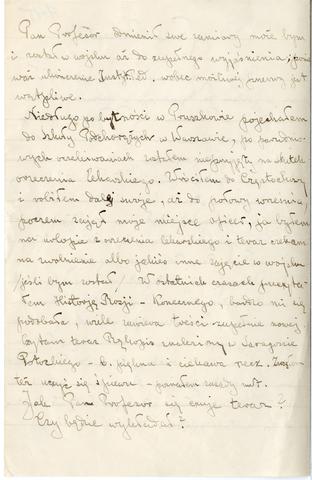 Pan Profesor odmienił swe zamiary może bym
i został w wojsku aż do zupełnego wyjaśnienia,
waż utworzenie Inst. Ped. wobec możliwej wojny jest
wątpliwe.
Niedługo po bytności w Pruszkowie pojechałem
do Szkoły Podchorążych w Warszawie, po parodnio-
wych oczekiwaniach zostałem na skutek
orzeczenia lekarskiego. Wróciłem do Częstochowy
i robiłem dalej swoje, aż do połowy września,
poczem zajął moje miejsce oficer, ja byłem
na urlopie z orzeczenia lekarskiego i teraz czekam
na zwolnienie albo jakieś inne zajęcie w wojsku
/jeśli bym został/ W ostatnich czasach przeczyta-
łem Historję Rosji - Konecznego, bardzo mi się
podobała, wiele zawiera treści zupełnie nowej
Czytam teraz Rękopis znaleziony w Saragosie
Potockiego - b. piękna i ciekawa rzecz.
też uczyć się śpiewu - poznałem zasady nut.
Jak Pan Profesor się czuje teraz?
Czy będzie wykładać?